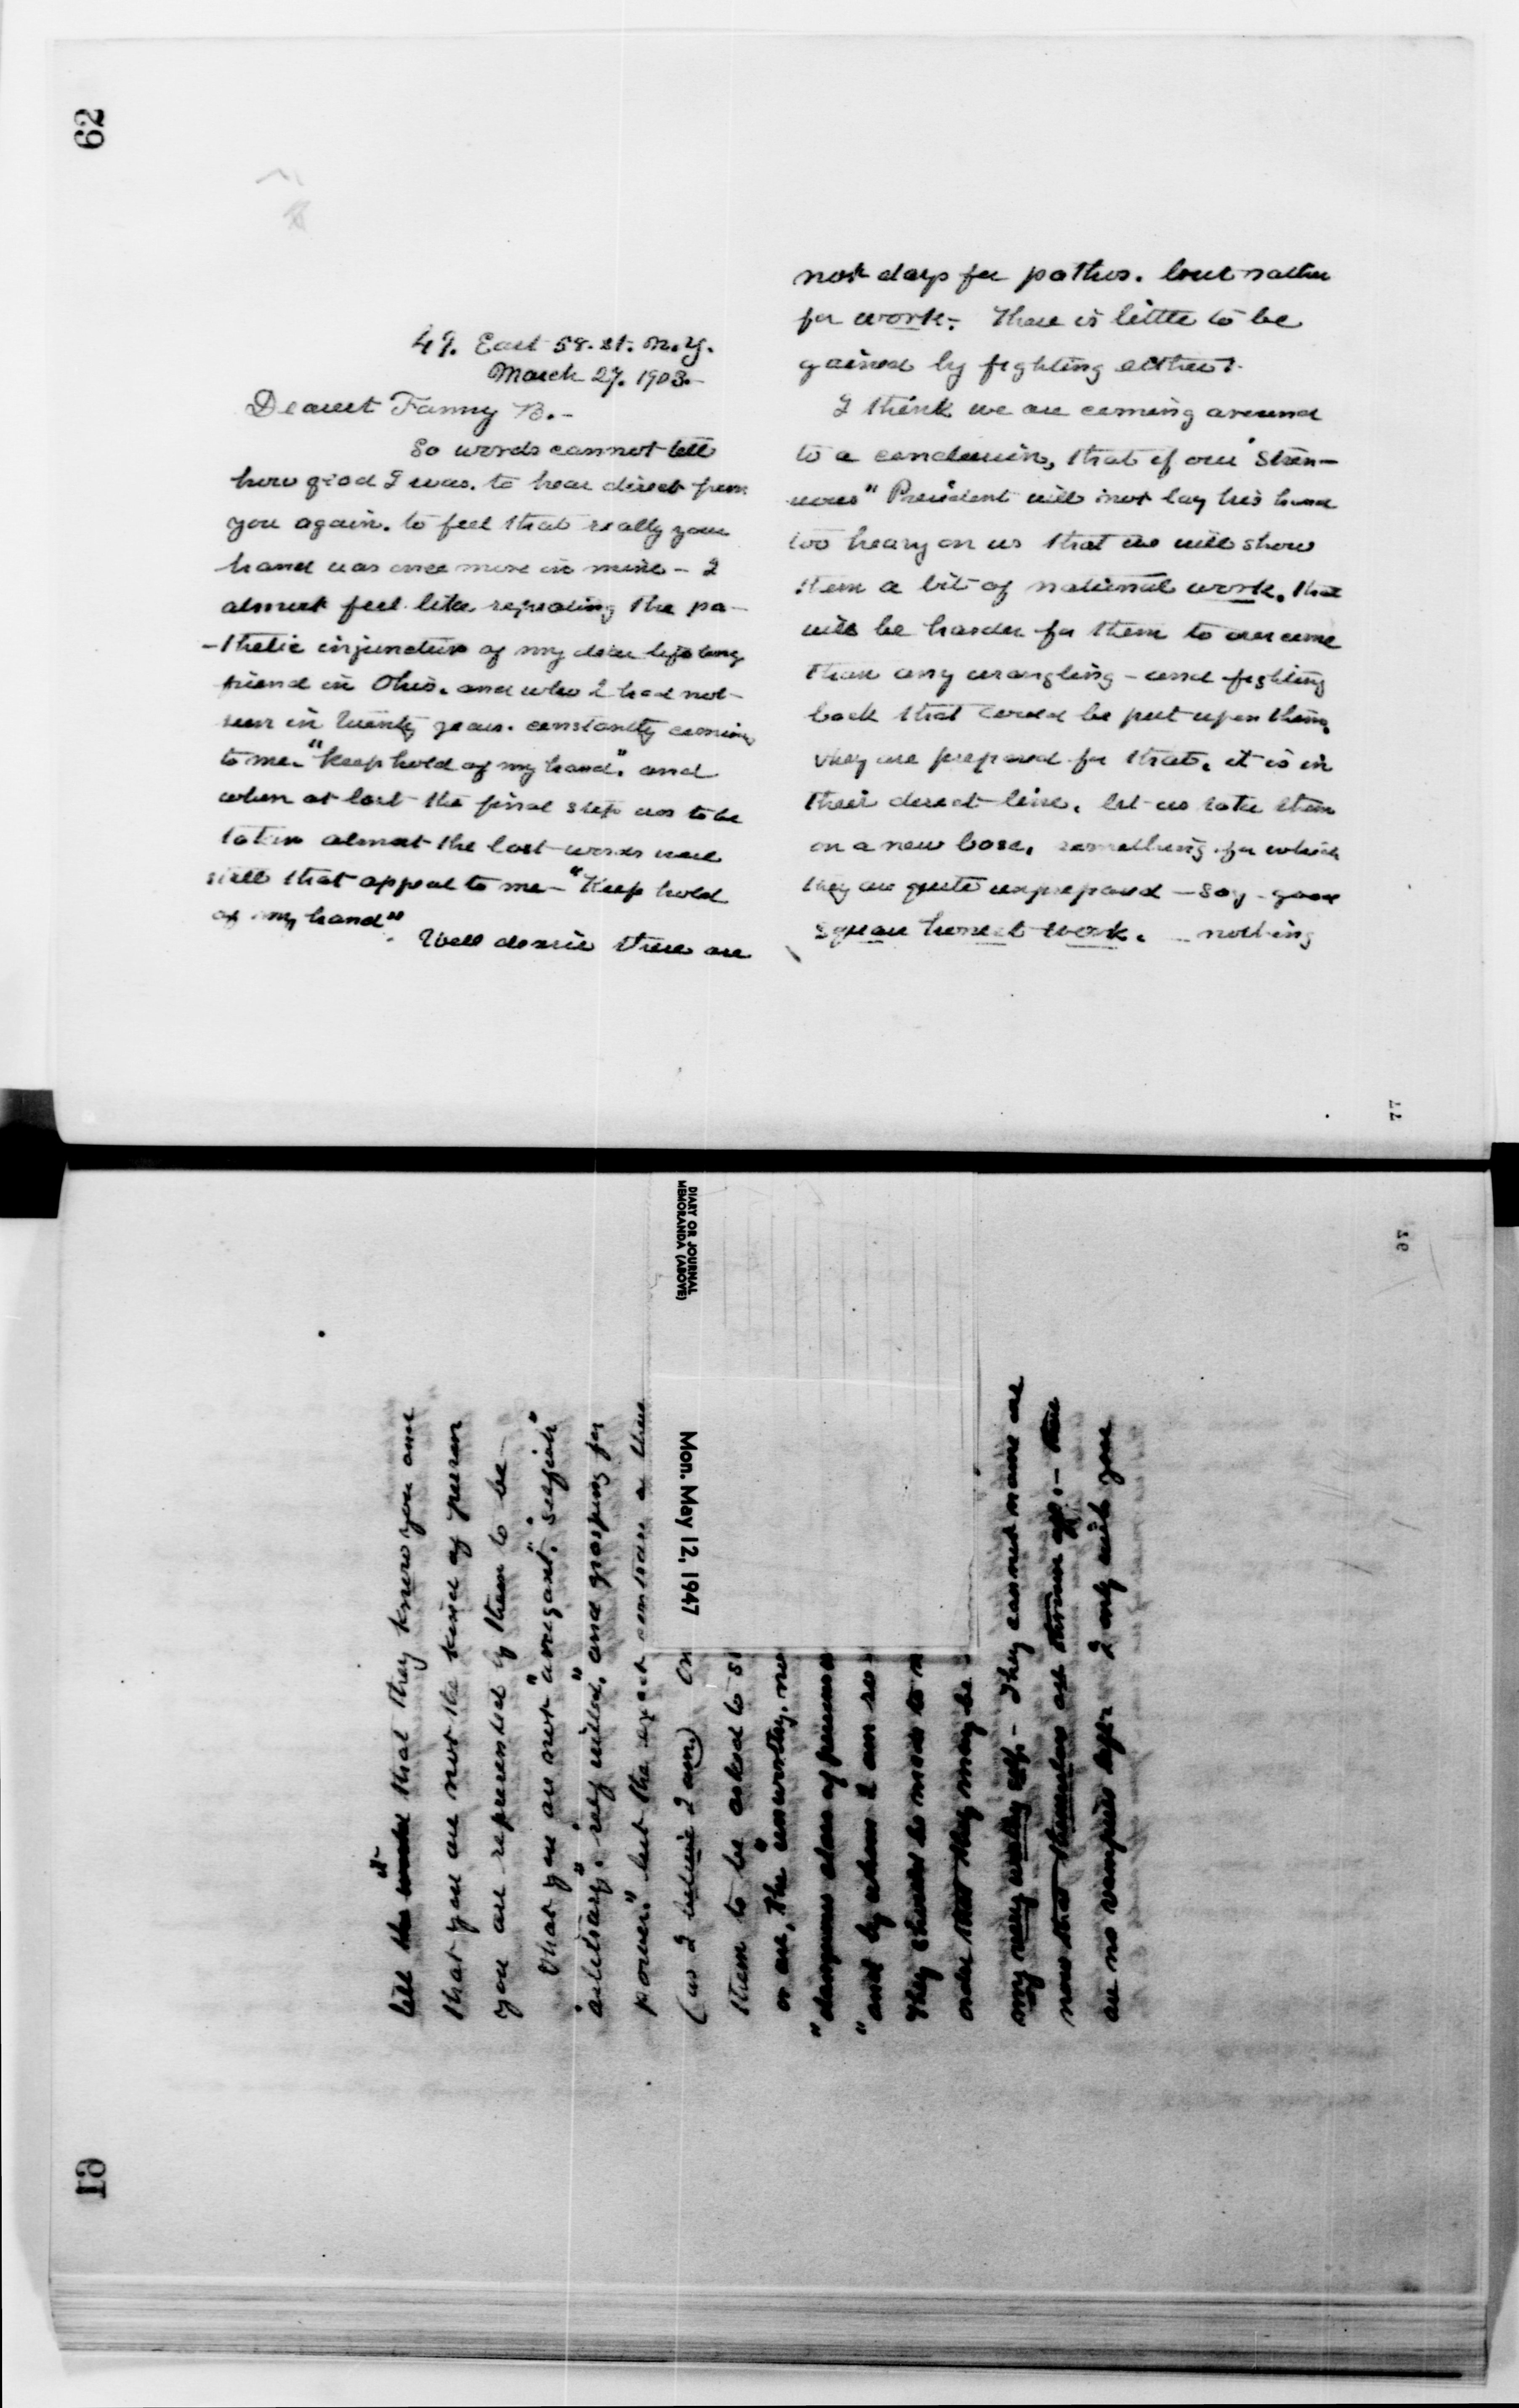 62
49. East 58. st. N.Y.
March 27. 1903.-
Dearest Fanny B.-
So words cannot tell
how glad I was. to hear direct from
you again. to feel that really your
hand was once more in mine - I
almost feel like repeating the pa-
-thetic injunction of my dear life long
friend in Ohio. and who I had not
seen in twenty years. constantly coming
to me. "Keep hold of my hand". and
when at last the final step was to be
taken almost the last words were
still that appeal to me - "Keep hold
of my hand".
Well dearie these are
not days for pathos. but rather
for work. There is little to be
gained by fighting either.
I think we are coming around
to a conclusion, that if our "Stren-
uous" President will not lay his hand
too heavy on us that we will show
them a bit of national work. that
will be harder for them to overcome
than any wrangling - and fighting
back that could be put upon them.
they are prepared for that. it is in
their direct line. let us take them
on a new base. something for which
they are quite unprepared - say - good
square honest work. - nothing
77
61
till the that they know you and
that you are not the kind of person
you are represented by them to be -
that you are not "arrogant", "selfish"
"arbitrary", "self willed", and "grasping for
power". but the exact contrary of these
(as I believe I am) on
them to be asked to s
or are, the "unworthy. no
"dangerous class of persons
"and by whom I am so
They should be made to n
order that they may be
my very worthy - They cannot name one
now that themselves are
are no vampires left. I only wish you
DIARY OR JOURNAL
MEMORANDA (ABOVE)
Mon. May 12, 1947